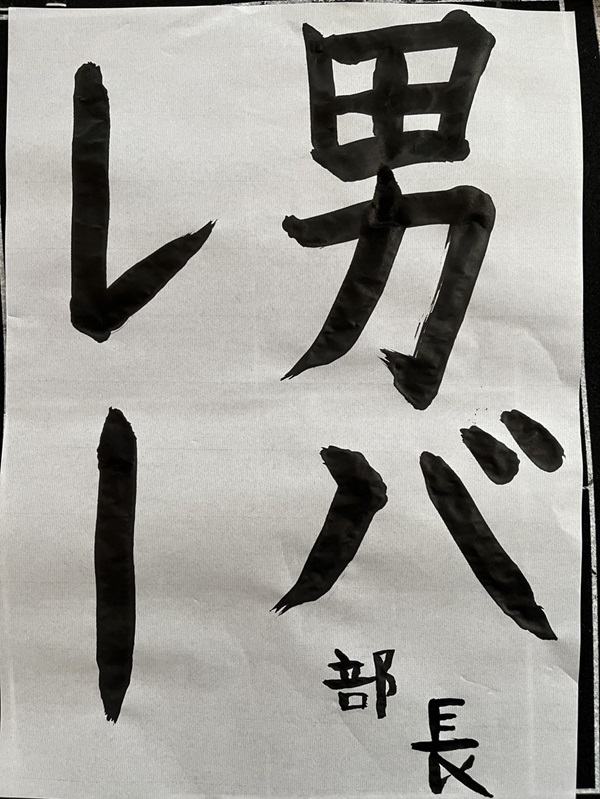 男バ
レー
部長